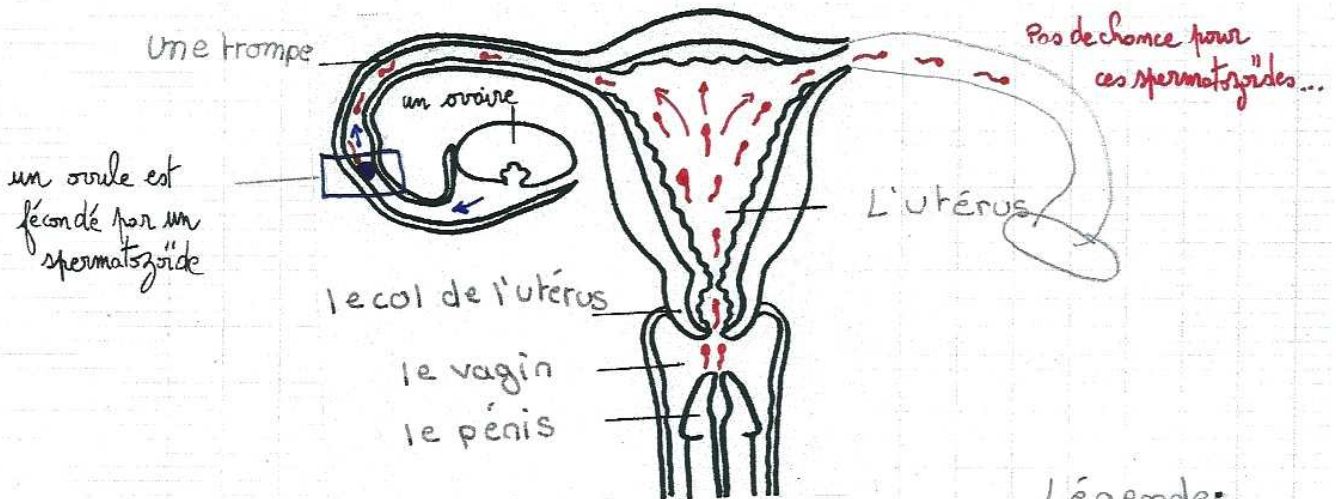 Une trompe
Pas de chance pour
ces spermatozoïdes...
un ovaire
un ovule est
fécondé par un
spermatozoïde
L'utérus
le col de l'utérus
le vagin
le pénis
Légende: